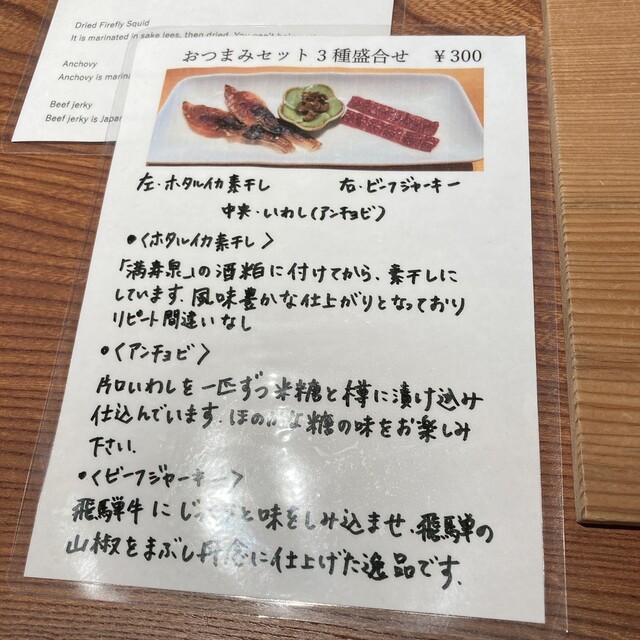 Dried Firefly Squid
It is marinated in sake lees, then dried. You can't
Anchovy
Anchovy is marina
Beef jerky
Beef jerky is Japan
おつまみセット3種盛合せ ￥300
左・ホタルイカ素干し 右・ビーフジャーキー
中央・いわし(アンチョビ)
•〈ホタルイカ素干し〉
「満寿泉」の酒粕に付けてから、素干しに
しています。風味豊かな仕上がりとなっており
リピート間違いなし
•〈アンチョビ〉
片口いわしを一匹ずつ米糖と樽に漬け込み
仕込んでいます。ほのかな糖の味をお楽しみ
下さい。
•〈ビーフジャーキー〉
飛騨牛にじっくりと味をしみ込ませ、飛騨の
山椒をまぶし丹念に仕上げた逸品です。